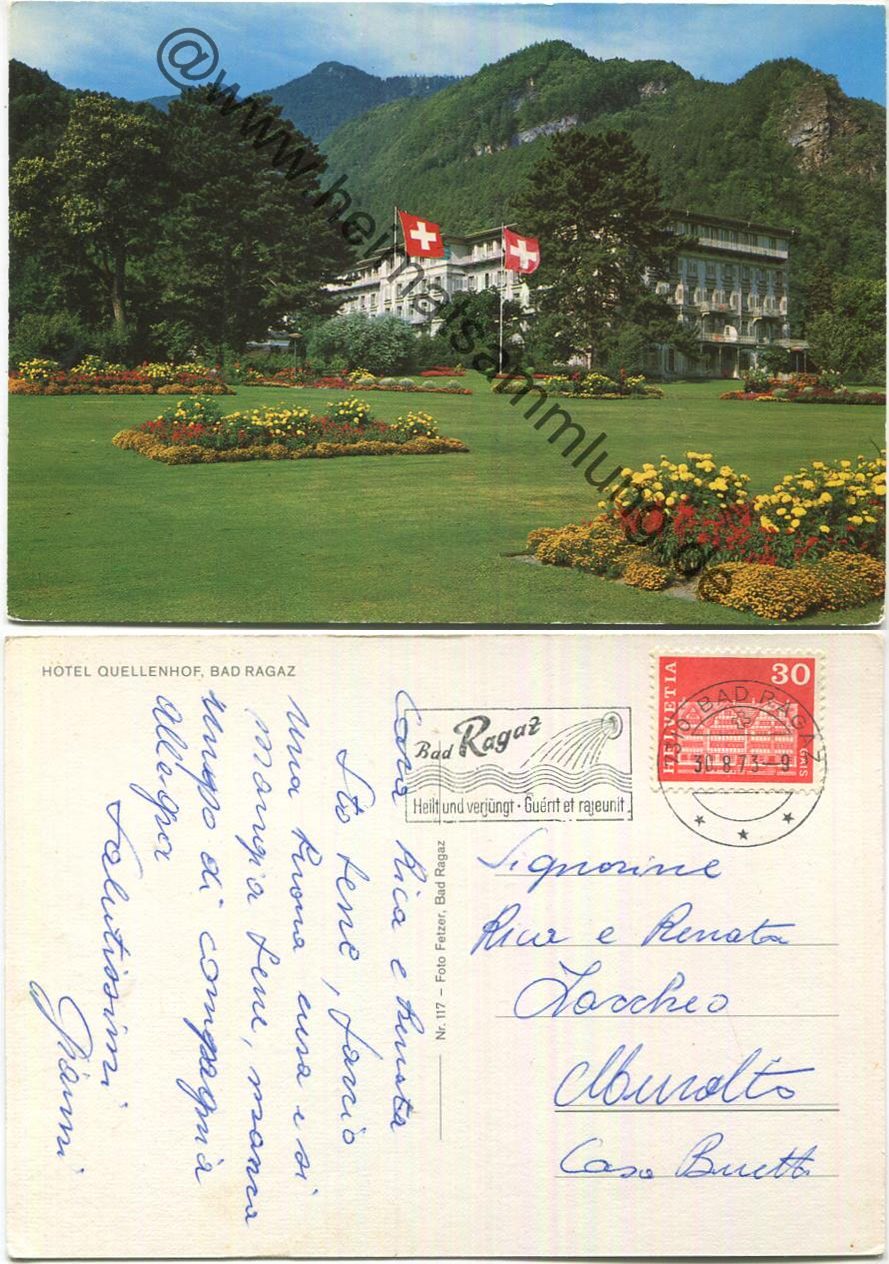 @www.heimatsammlung.de
HOTEL QUELLENHOF, BAD RAGAZ
Cara Rica e Renata
Sto bene, faccio
una buona cura e si
mangia bene, manca
un po di compagnia
allegra
Salutissimi
Gianni
Nr. 117 – Foto Fetzer, Bad Ragaz
Bad Ragaz
Heilt und verjüngt · Guérit et rajeunit
HELVETIA
30
GAIS
7310 BAD RAGAZ
30.8.73-9
Signorine
Rica e Renata
Zaccheo
Muralto
Casa